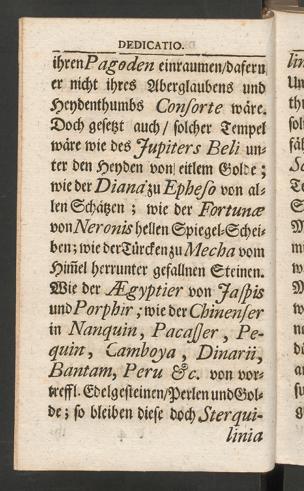 DEDICATIO.
ihren Pagoden einraumen/dafern
er nicht ihres Aberglaubens und
Heydenthumbs Consorte wäre.
Doch gesetzt auch / solcher Tempel
wäre wie des Jupiters Beli un-
ter den Heyden von eitlem Golde;
wie der Diana zu Epheso von al-
len Schätzen; wie der Fortunæ
von Neronis hellen Spiegel-Schei-
ben; wie der Türcken zu Mecha vom
Him̃el herrunter gefallnen Steinen.
Wie der Ægyptier von Jaspis
und Porphir; wie der Chinenser
in Nanquin, Pacasser, Pe-
quin, Camboya, Dinarii,
Bantam, Peru &c. von vor-
treffl. Edelgesteinen/Perlen und Gol-
de; so bleiben diese doch Sterqui-
linia